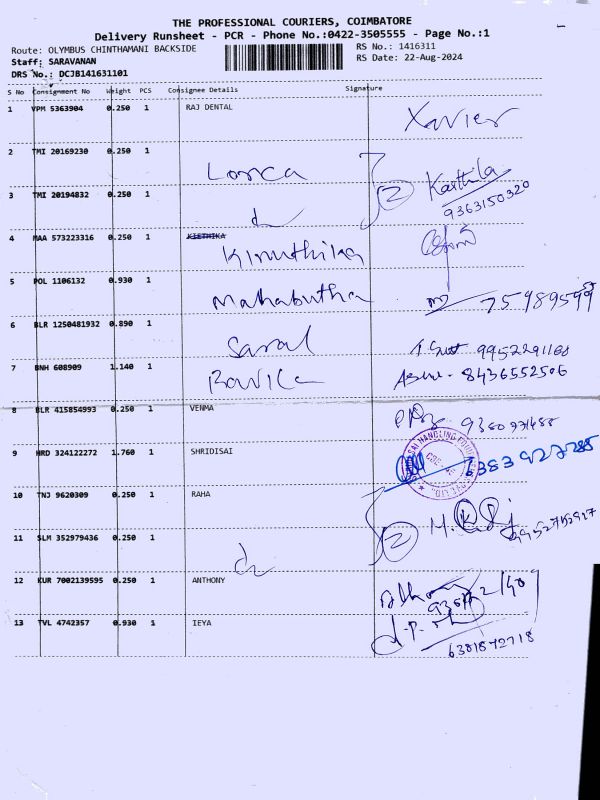 THE PROFESSIONAL COURIERS, COIMBATORE
Delivery Runsheet - PCR - Phone No.:0422-3505555 - Page No.:1
Route: OLYMBUS CHINTHAMANI BACKSIDE
RS No.: 1416311
Staff: SARAVANAN
RS Date: 22-Aug-2024
DRS No.: DCJB141631101
S No Consignment No Weight PCS Consignee Details Signature
1 VPM 5363904 0.250 1 RAJ DENTAL Xavier
2 TMI 20169230 0.250 1
Karthika
3 TMI 20194832 0.250 1
9363150320
4 MAA 573223316 0.250 1 KIETHIKA
Kiruthika
5 POL 1106132 0.930 1
Mahabutha
6 BLR 1250481932 0.890 1
Saral 9952291160
7 BNH 608909 1.140 1
8436552506
8 BLR 415854993 0.250 1 VENMA
9 HRD 324122272 1.760 1 SHRIDISAI
6383927785
10 TNJ 9620309 0.250 1 RAHA
2
11 SLM 352979436 0.250 1
12 KUR 7002139595 0.250 1 ANTHONY
13 TVL 4742357 0.930 1 IEYA
6381872718